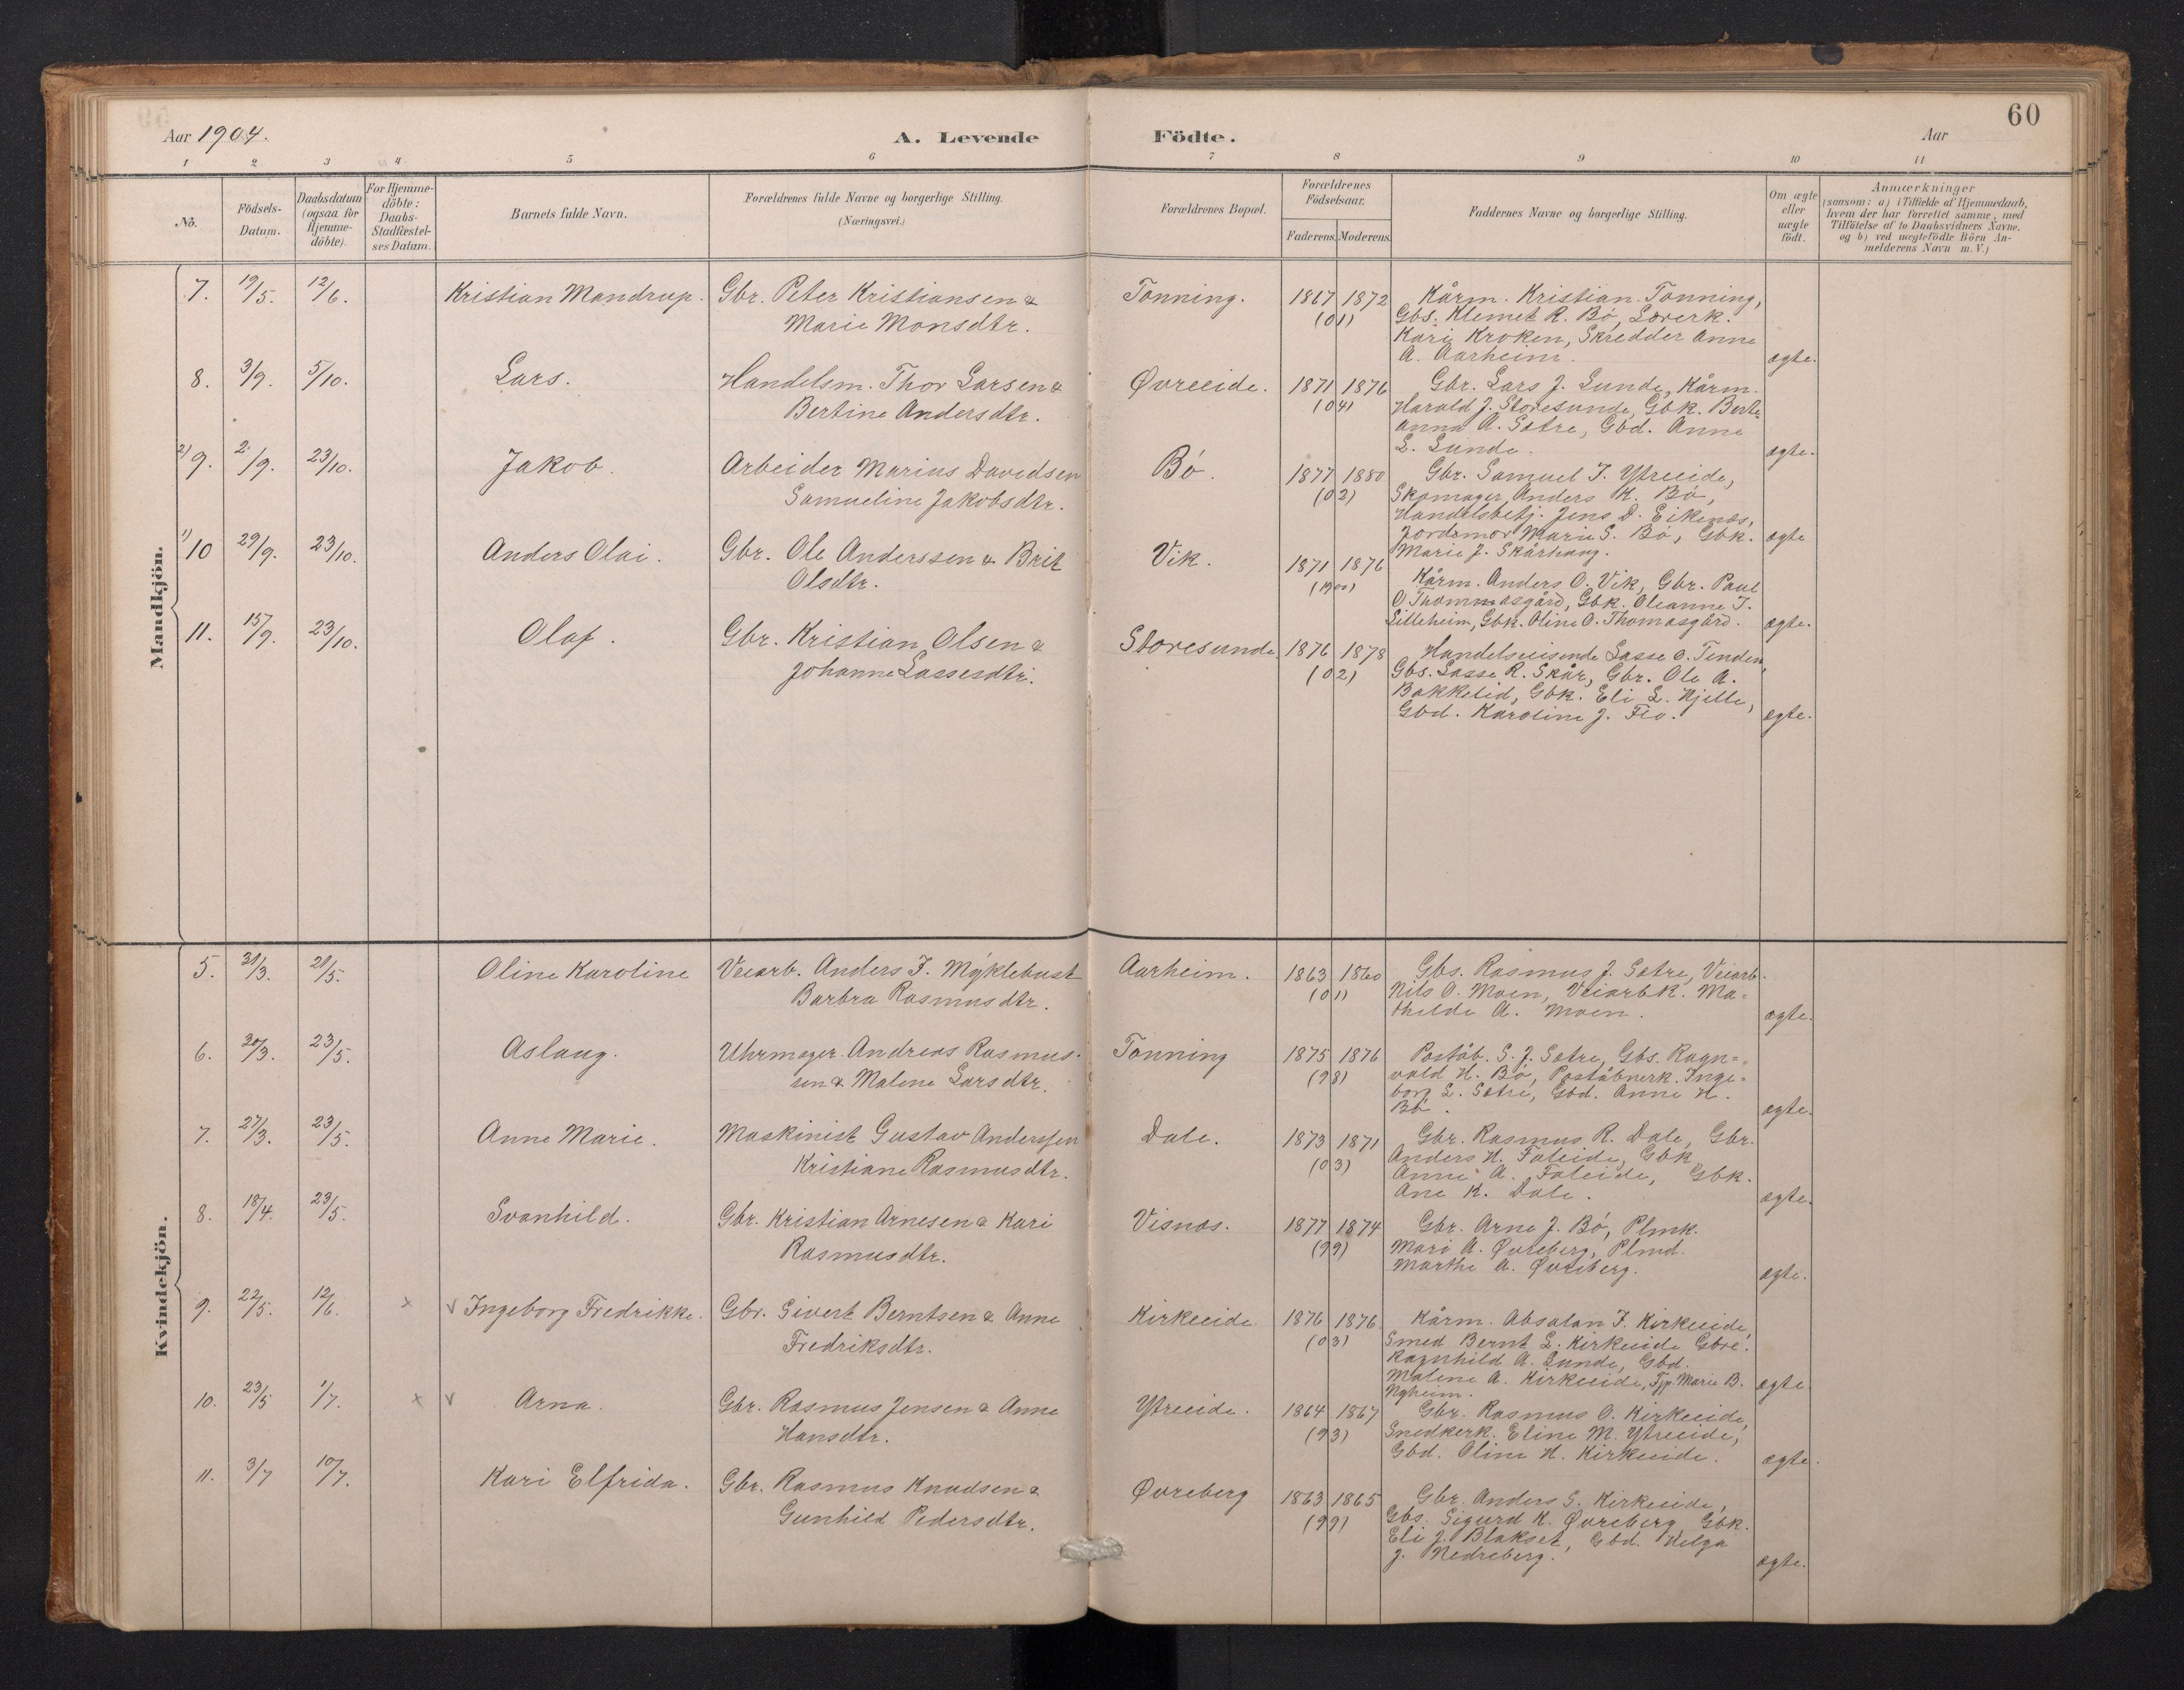 60
Aar 1904.
A. Levende Födte.
Aar
1 2 3 4 5 6 7 8 9 10 11
No.
Födsels-Datum.
Daabsdatum (ogsaa for Hjemme-döbte).
For Hjemme-döbte: Daabs-Stadfæstel-ses Datum.
Barnets fulde Navn.
Forældrenes fulde Navne og borgerlige Stilling.
(Næringsvei.)
Forældrenes Bopæl.
Forældrenes Födselsaar.
Faderens. Moderens.
Faddernes Navne og borgerlige Stilling.
Om ægte eller uægte födt.
Anmærkninger
(saasom: a) i Tilfælde af Hjemmedaab,
hvem der har forrettet samme, med
Tilföielse af to Daabsvidners Navne.
og b) ved uægtefödte Börn An-
melderens Navn m. V.)
Mandkjön.
7. 19/5. 12/6. Kristian Mandrup. Gbr. Peter Kristiansen & Tonning. 1867 1872 Kårm. Kristian Tonning,
Marie Monsdtr. (01) Gbs. Klemet R. Bö, Lærerk.
Kari Kroken, Skredder Anne
A. Aarheim. ægte.
8. 3/9. 5/10. Lars. Handelsm. Thor Larsen & Øvreeide. 1871 1876 Gbr. Lars J. Lunde, Kårm.
Bertine Andersdtr. (04) Harald J. Storesunde, Gbk. Berte
anna A. Sætre, Gbd. Anne
L. Lunde. ægte.
2) 9. 2/9. 23/10. Jakob. Arbeider Marius Davidsen Bö. 1877 1880 Gbr. Samuel J. Ytreeide,
Samueline Jakobsdtr. (02) Skomager Anders K. Bö,
Handelsbetj. Jens D. Eikenæs,
Jordemor Marie S. Bö, Gbk. ægte
Marie J. Skårhaug.
1) 10 29/9. 23/10. Anders Olai. Gbr. Ole Anderssen & Brit Vik. 1871 1876
Olsdtr. (1900) Kårm. Anders O. Vik, Gbr. Paul
O. Thommasgård, Gbk. Oleanne J.
Lilleheim, Gbk. Oline O. Thomasgård. ægte.
11. 15/9. 23/10. Olaf. Gbr. Kristian Olsen & Storesunde. 1876 1878 Handelsreisende Lasse O. Tenden,
Johanne Lassesdtr. (02) Gbs. Lasse R. Skår, Gbr. Ole A.
Bakkelid, Gbk. Eli L. Hjelle,
Gbd. Karoline J. Flo. ægte.
Kvindekjön.
5. 31/3. 21/5. Oline Karoline Veiarb. Anders J. Myklebust Aarheim. 1863 1860 Gbs. Rasmus J. Sætre, Veiarb.
Barbra Rasmusdtr. (01) Nils O. Moen, Veiarbk. Ma-
thilde A. Moen. ægte.
6. 20/3. 23/5. Aslaug. Uhrmager Andreas Rasmus- Tonning 1875 1876 Poståb. S. J. Sætre, Gbs. Ragn-
sen & Malene Larsdtr. (98) vald H. Bö, Poståbnerk. Inge-
borg L. Sætre, Gbd. Anne H.
Bö. ægte.
7. 27/3. 23/5. Anne Marie. Maskinist Gustav Anderssen Dale. 1873 1871 Gbr. Rasmus R. Dale, Gbr.
Kristiane Rasmusdtr. (03) Anders H. Faleide, Gbk
Anne A. Faleide, Gbk.
Ane K. Dale. ægte.
8. 18/4. 23/5. Svanhild. Gbr. Kristian Arnesen & Kari Visnæs. 1877 1874 Gbr. Arne J. Bö, Plmk.
Rasmusdtr. (99) Mari A. Øvreberg, Plmd.
Marthe A. Øvreberg. ægte.
9. 22/5. 12/6. x v Ingeborg Fredrikke. Gbr. Sivert Berntsen & Anne Kirkeeide 1876 1876 Kårm. Absalon J. Kirkeeide,
Fredriksdtr. (03) Smed Bernt L. Kirkeeide Gbre.
Ragnhild A. Lunde, Gbd.
Malene A. Kirkeeide, Tjp. Marie B. ægte.
Nyheim.
10. 23/5 1/7. x v Arna. Gbr. Rasmus Jensen & Anne Ytreeide. 1864 1867 Gbr. Rasmus O. Kirkeeide,
Hansdtr. (93) Snedkerk. Eline M. Ytreeide,
Gbd. Oline H. Kirkeeide. ægte.
11. 3/7 10/7. Kari Elfrida. Gbr. Rasmus Knudsen & Øvreberg 1863 1865 Gbr. Anders S. Kirkeeide,
Gunhild Pedersdtr. (99) Gbs. Sigurd K. Øvreberg Gbk.
Eli J. Blakset, Gbd. Helga
J. Nedreberg. ægte.